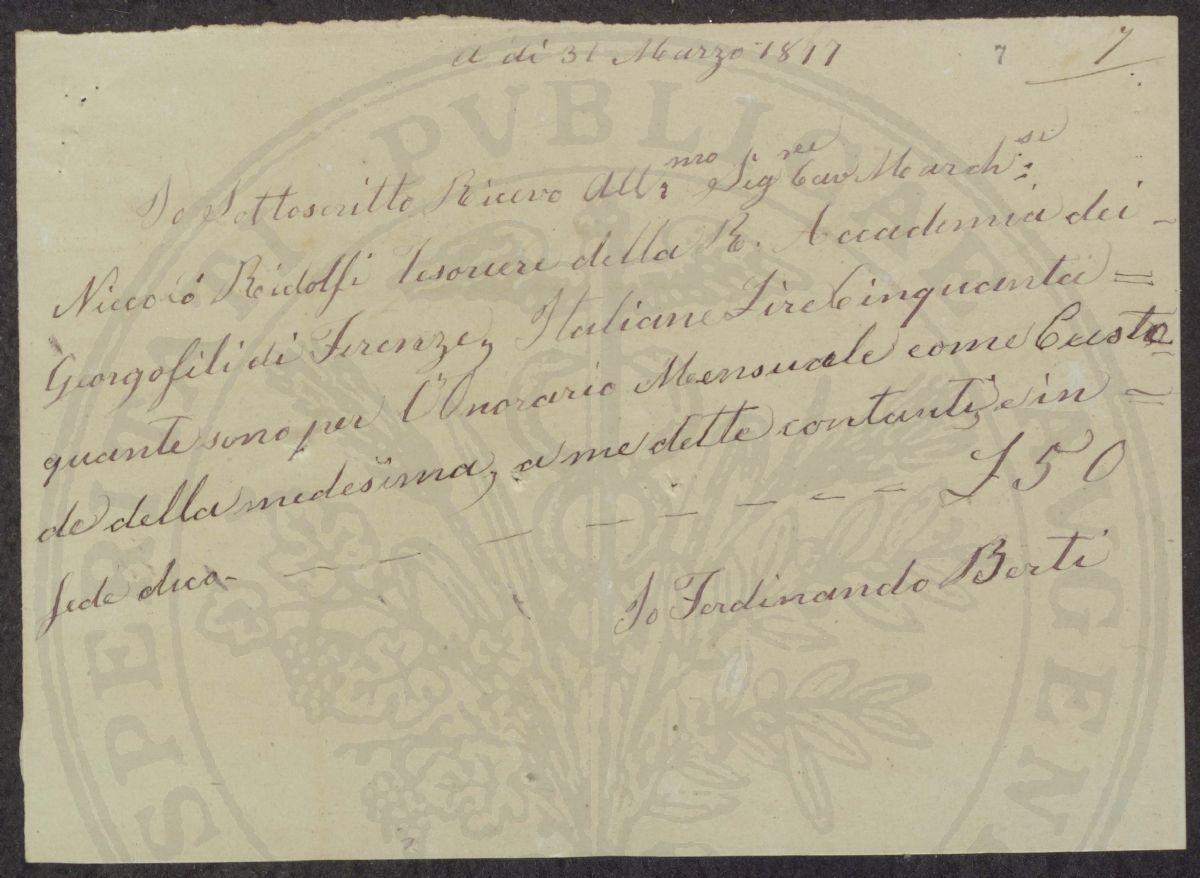 A dì 31 Marzo 1817 7 7
Io Sottoscritto Ricevo Ill.mo Sig.re Cav March:si
Niccoló Ridolfi Tesoriere della R. Accademia dei -
Georgofili di Firenze, Italiane Lire Cinquanta =
quante sono per l'Onorario Mensuale come Custo=
de della medesima, a me dette contanti, e in =
fede dico - — — — — — — — — £ 50
Io Ferdinando Berti
PVBLICAE
SPERITAS
AVGEN